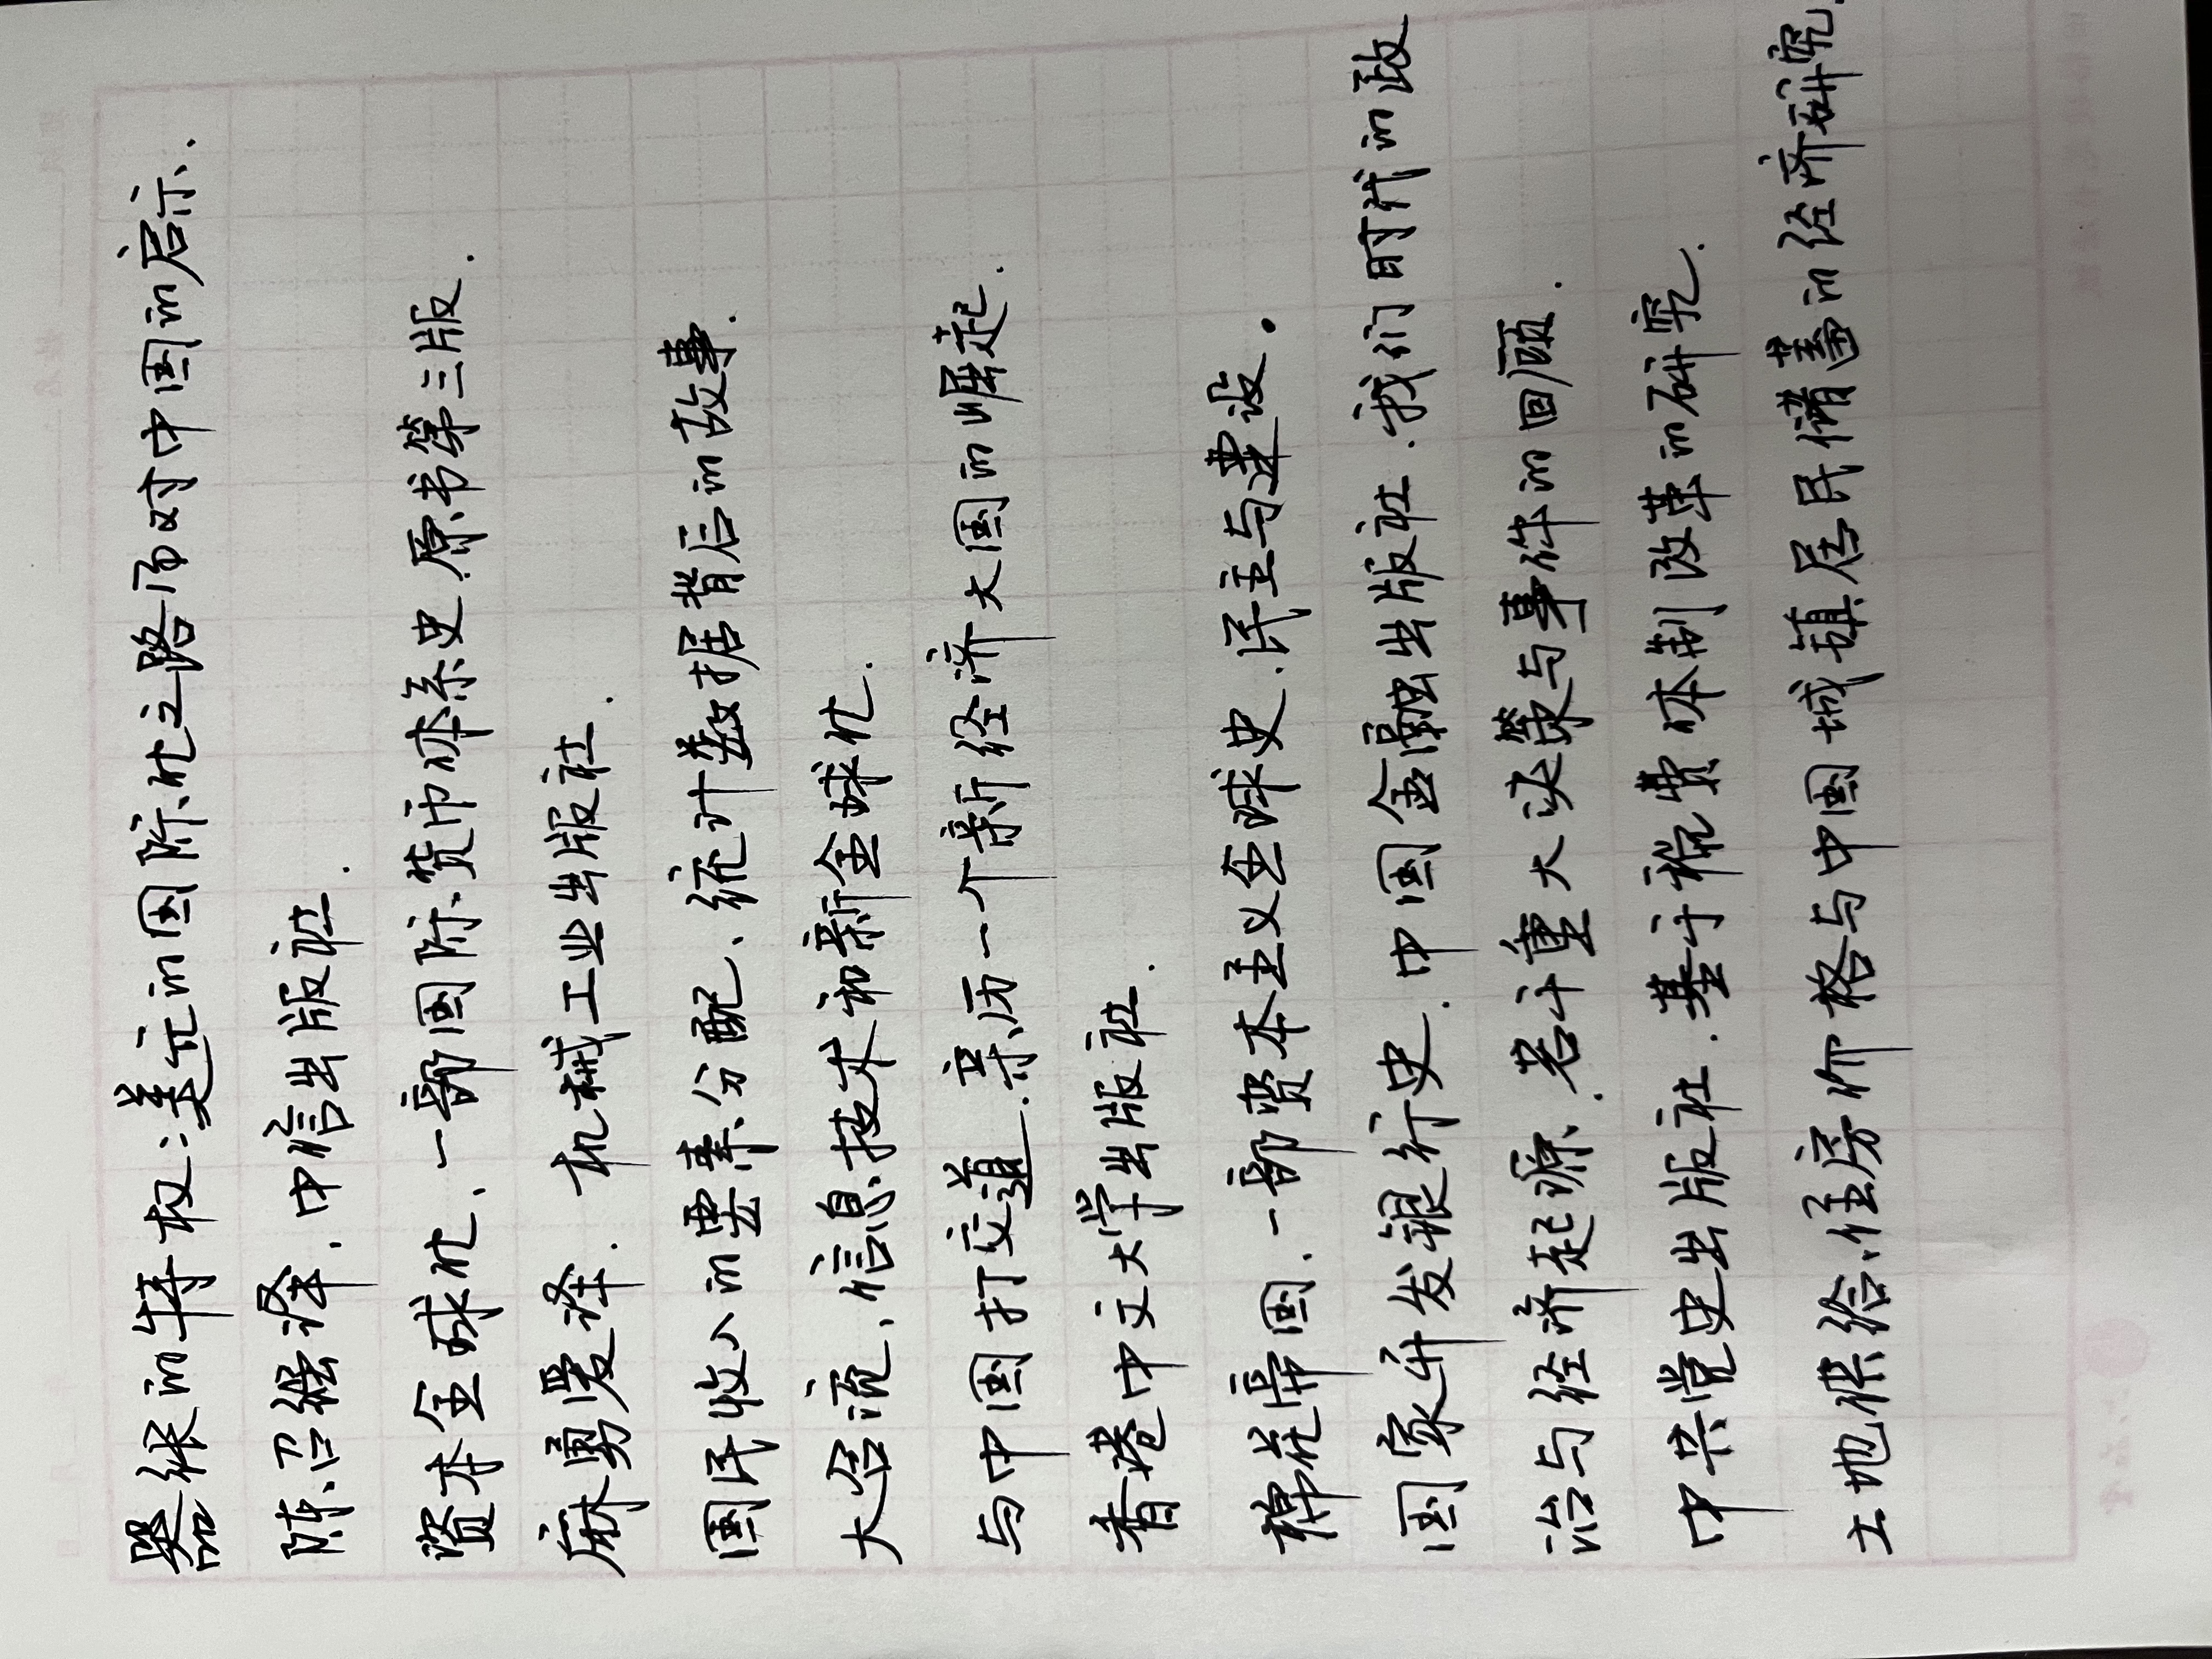 嚣张的特权:美元的国际化之路而对中国的启示.
陈召强译.中信出版社.
资本全球化、一部国际货币体系史.原书第三版.
麻勇爱译.机械工业出版社.
国民收入的要素分配、统计数据背后的故事.
大合流、信息技术和新全球化.
与中国打交道.亲历一个新经济大国的崛起.
香港中文大学出版社.
棉花帝国.一部资本主义全球史.民主与建设.
国家开发银行史.中国金融出版社.我们时代的政
治与经济起源.若干重大决策与事件的回顾.
中共党史出版社.基于税费体制改革的研究.
土地供给.住房价格与中国城镇居民储蓄的经济研究.